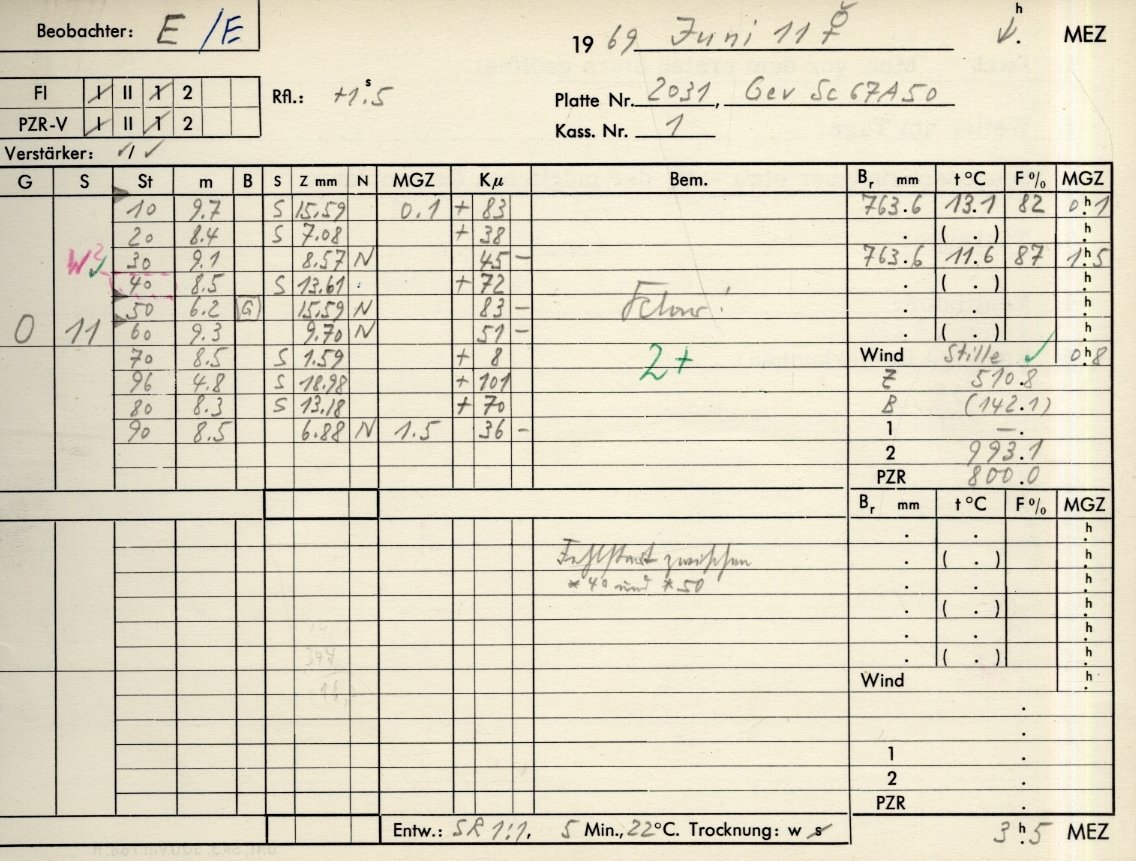 Beobachter: E /E
19 69 Juni 11 h MEZ
FI I II 1 2
Rfl.: +1.5 s
Platte Nr. 2031, Gev Sc 67A50
PZR-V I II 1 2
Kass. Nr. 1
Verstärker: √/√
G S St m B S Z mm N MGZ Kμ Bem. Br mm t °C F % MGZ
10 9.7 S 15.59 0.1 + 83 763.6 13.1 82 0h.1
20 8.4 S 7.08 + 38 . ( . ) h.
W2 √ 30 9.1 8.57 N 45 - 763.6 11.6 87 1h.5
40 8.5 S 13.61 + 72 . ( . ) h.
50 6.2 G 15.59 N 83 - . . h.
0 11 60 9.3 9.70 N 51 - . ( . ) h.
70 8.5 S 1.59 + 8 2+ Wind Stille √ 0h.8
96 4.8 S 18.98 + 101 Z 510.8
80 8.3 S 13.18 + 70 B (142.1)
90 8.5 6.88 N 1.5 36 - 1 —.
2 993.1
PZR 800.0
Br mm t °C F % MGZ
. . h.
Fehlstart zwischen . ( . ) h.
* 40 und * 50 . . h.
. ( . ) h.
. . h.
344 . ( . ) h.
Wind h.
.
.
1 .
2 .
PZR .
Entw.: SR 1:1, 5 Min., 22°C. Trocknung: w s
3h.5 MEZ